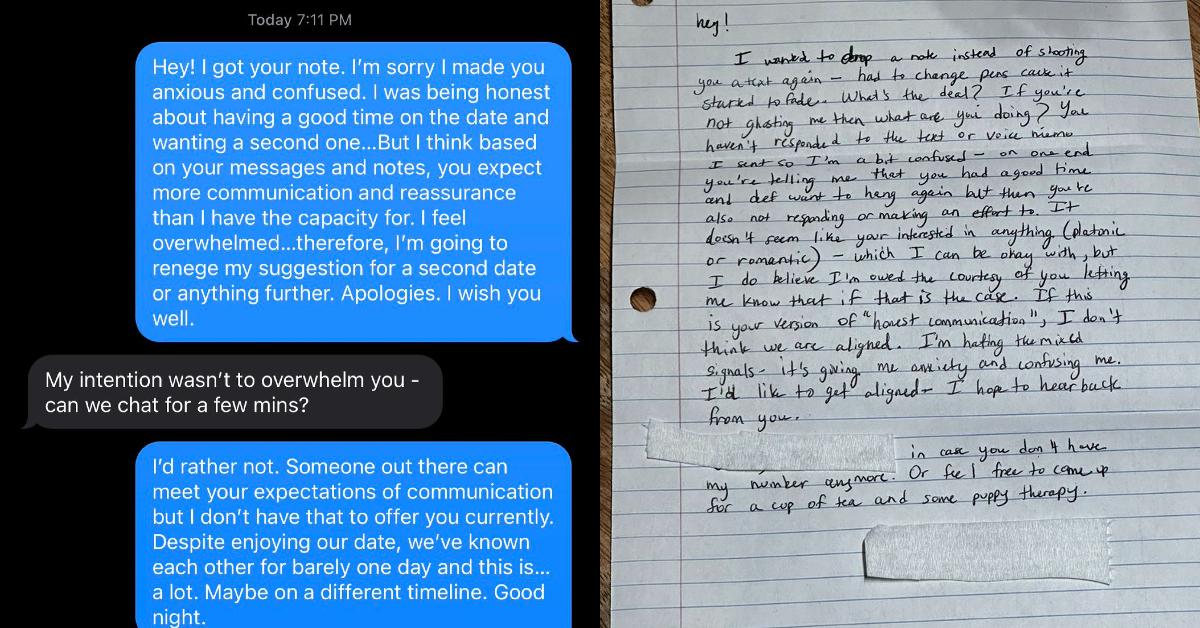 Today 7:11 PM
Hey! I got your note. I'm sorry I made you
anxious and confused. I was being honest
about having a good time on the date and
wanting a second one...But I think based
on your messages and notes, you expect
more communication and reassurance
than I have the capacity for. I feel
overwhelmed...therefore, I'm going to
renege my suggestion for a second date
or anything further. Apologies. I wish you
well.
My intention wasn't to overwhelm you -
can we chat for a few mins?
I'd rather not. Someone out there can
meet your expectations of communication
but I don't have that to offer you currently.
Despite enjoying our date, we've known
each other for barely one day and this is...
a lot. Maybe on a different timeline. Good
night.
hey!
I wanted to drop a note instead of shooting
you a text again - had to change pens cause it
started to fade.. What's the deal? If you're
not ghosting me then what are you doing? You
haven't responded to the text or voice memo
I sent so I'm a bit confused - on one end
you're telling me that you had a good time
and def want to hang again but then you're
also not responding or making an effort to. It
doesn't seem like your interested in anything (platonic
or romantic) - which I can be okay with, but
I do believe I'm owed the courtesy of you letting
me know that if that is the case. If this
is your version of "honest communication", I don't
think we are aligned. I'm hating the mixed
signals - it's giving me anxiety and confusing me.
I'd like to get aligned - I hope to hear back
from you.
in case you don't have
my number anymore. Or feel free to come up
for a cup of tea and some puppy therapy.